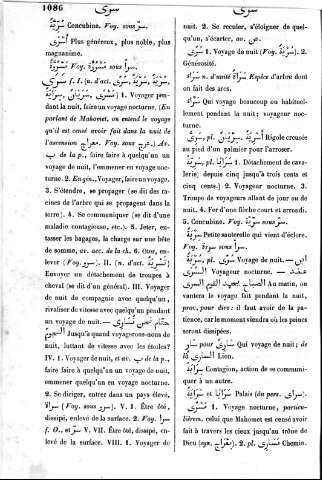 1086 سرى سرى
سُرِّيَّة Concubine. Voy. sous سرّ.
أَسْرَى Plus généreux, plus noble, plus
magnanime.
f. I. (n. d'act.
1. Voyager pen-
dant la nuit, faire un voyage nocturne. (En
parlant de Mahomet, on entend le voyage
qu'il est censé avoir fait dans la nuit de
l'ascension معراج. Voy. sous عرج.) Av.
ب de la p., faire faire à quelqu'un un
voyage de nuit, l'emmener en voyage noc-
turne. 2. En gén., Voyager, faire un voyage.
3. S'étendre, se propager (se dit des ra-
cines de l'arbre qui se propagent dans la
terre). 4. Se communiquer (se dit d'une
maladie contagieuse, etc.). 5. Jeter, en-
tasser les bagages, la charge sur une bête
de somme, av. acc. de la ch. 6. Oter, en-
lever (Voy. سرو). II. (n. d'act. تَسْرِيَة)
Envoyer un détachement de troupes à
cheval (se dit d'un général). III. Voyager
de nuit de compagnie avec quelqu'un,
rivaliser de vitesse avec quelqu'un pendant
un voyage de nuit.—
Jusqu'à quand voyagerons-nous de
nuit, luttant de vitesse avec les étoiles?
IV. 1. Voyager de nuit, et av. ب de la p.,
faire faire à quelqu'un un voyage de nuit,
emmener quelqu'un en voyage nocturne.
2. Se diriger, entrer dans un pays élevé,
(Voy. sous سرو). V. 1. Être ôté,
dissipé, enlevé de la surface. 2. Voy. سرا
f. O., et سرّ V. VII. Être ôté, dissipé, en-
levé de la surface. VIII. 1. Voyager de
nuit. 2. Se reculer, s'éloigner de quel-
qu'un, s'écarter, av. عن.
سُرًى 1. Voyage de nuit (Voy. سرى). 2.
Générosité.
سَرَاء n. d'unité سَرَاءَة Espèce d'arbre dont
on fait des arcs.
سَرَّاء Qui voyage beaucoup ou habituel-
lement pendant la nuit; voyageur noc-
turne.
سَرِىّ, pl. أَسْرِيَة, سُرْيَان Rigole creusée
au pied d'un palmier pour l'arroser.
سَرِيَّة, pl. سَرَايَا 1. Détachement de cava-
lerie; depuis cinq jusqu'à trois cents et
cinq cents.) 2. Voyageur nocturne. 3.
Troupe de voyageurs allant de jour ou de
nuit. 4. Fer d'une flèche court et arrondi.
5. Concubine. Voy. سُرِّيَّة sous سرّ.
Petite sauterelle qui vient d'éclore.
Voy. سروة sous سرأ.
سَارِيَة, pl. Voyage de nuit.— ابن
السرى Voyageur nocturne. — عند
الصباح يحمد القوم السرى Au matin, on
vantera le voyage fait pendant la nuit,
prov., pour dire: il faut avoir de la pa-
tience, car le moment viendra où les peines
seront dissipées.
سَارٍ pour سَارِى Qui voyage de nuit; de
là السارى Lion.
سِرَايَة Contagion, action de se communi-
quer à un autre.
سَرَايَة et سَرَايَا Palais (du pers. سراى).
مَسْرًى 1. Voyage nocturne, particu-
lièrem. celui que Mahomet est censé avoir
fait à travers les cieux jusqu'au trône de
Dieu (syn. معراج). 2. pl. مَسَارِى Chemin.